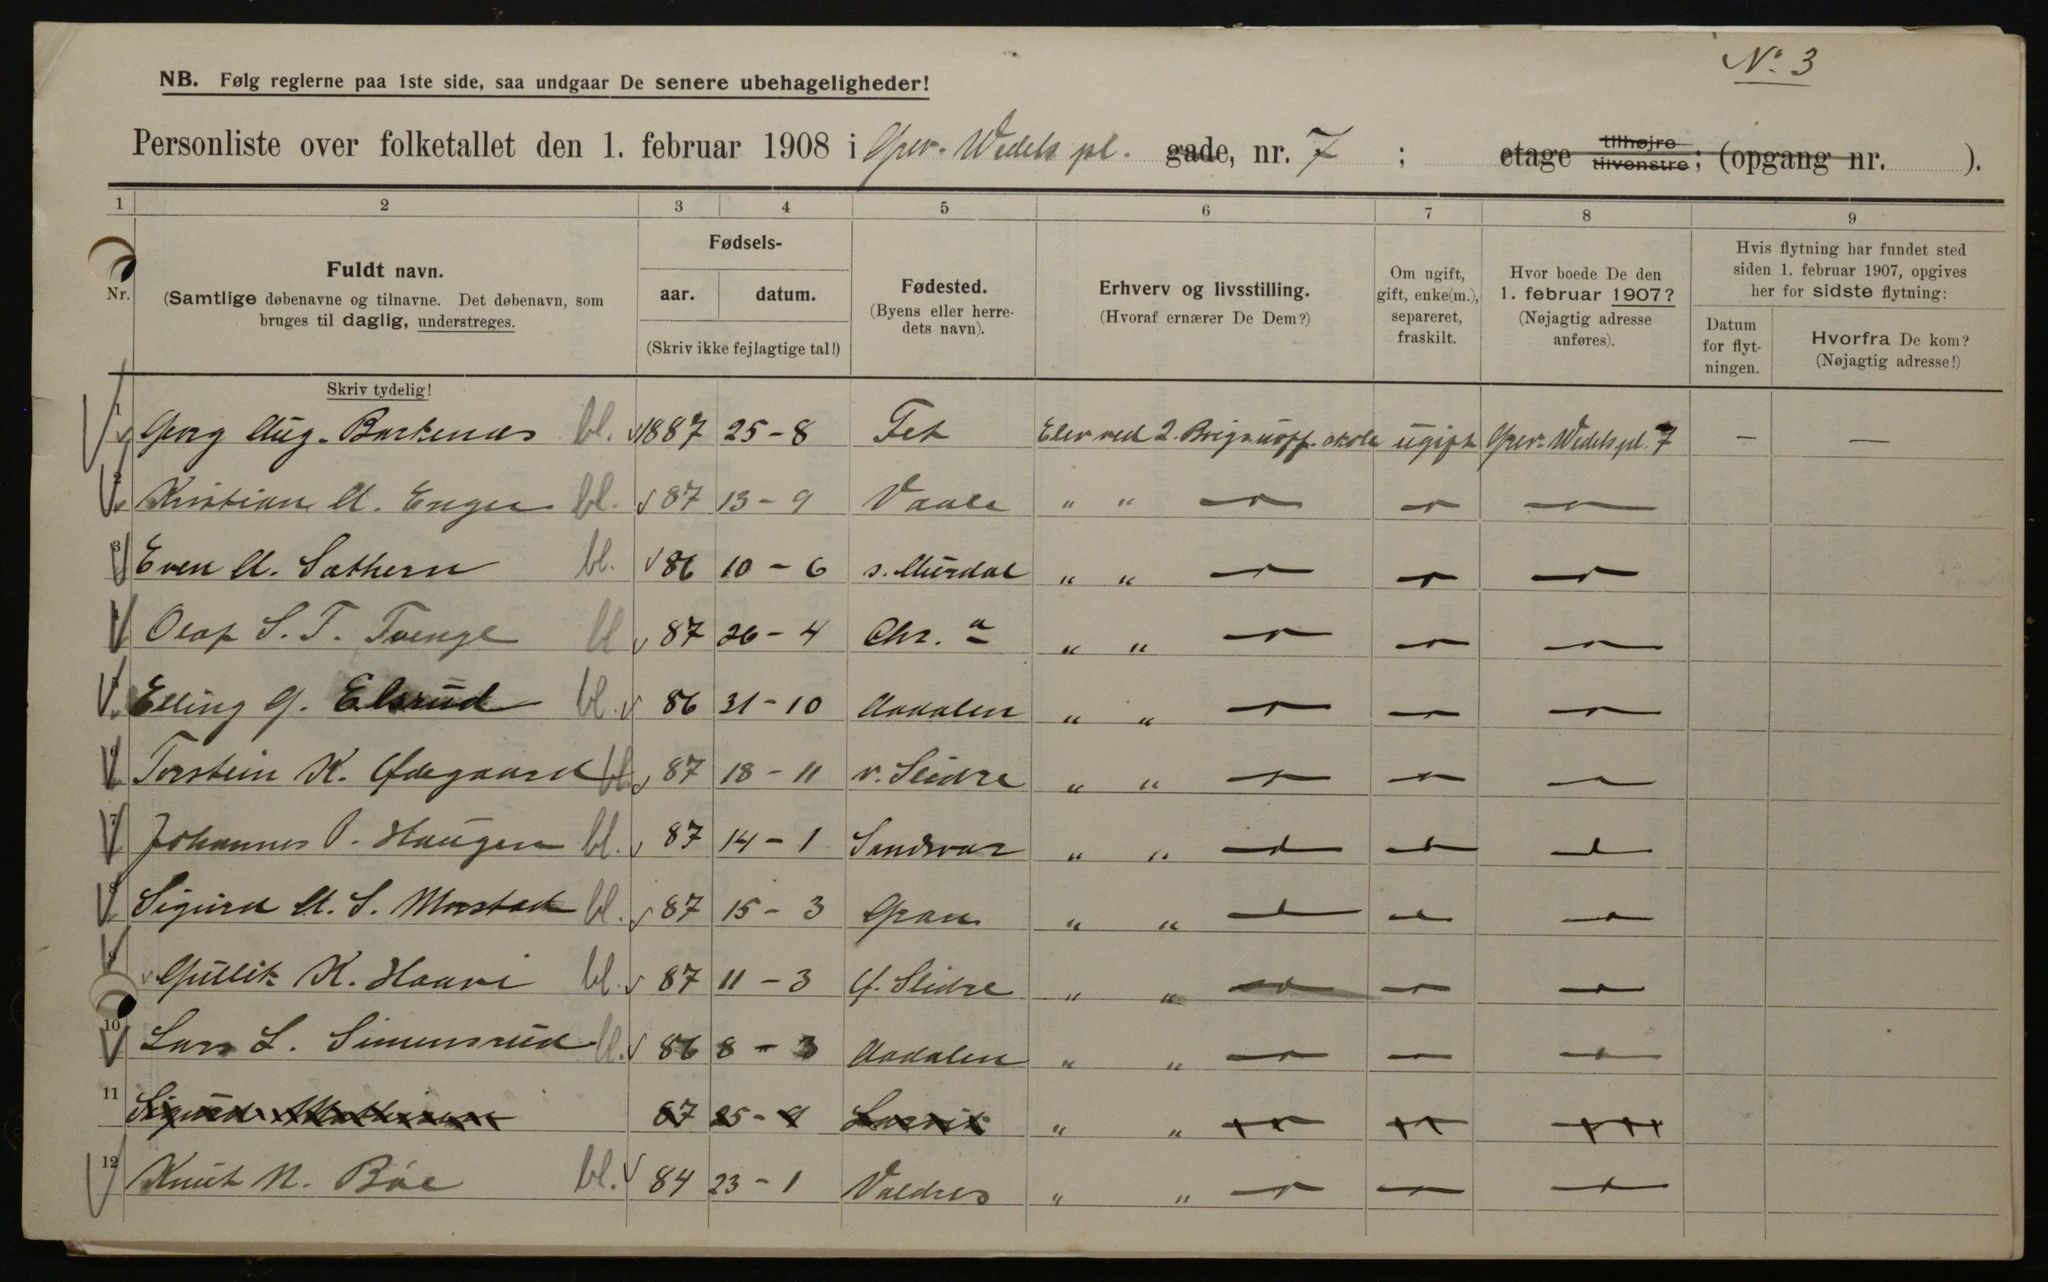 Nº 3
NB. Følg reglerne paa 1ste side, saa undgaar De senere ubehageligheder!
Personliste over folketallet den 1. februar 1908 i Grev. Wedels pl. gade, nr. 7 ; etage tilhøjre tilvenstre; (opgang nr. ).
1 2 3 4 5 6 7 8 9
Nr. Fuldt navn. (Samtlige døbenavne og tilnavne. Det døbenavn, som bruges til daglig, understreges. Skriv tydelig!
Fødsels- aar. datum. (Skriv ikke fejlagtige tal!)
Fødested. (Byens eller herredets navn).
Erhverv og livsstilling. (Hvoraf ernærer De Dem?)
Om ugift, gift, enke(m.), separeret, fraskilt.
Hvor boede De den 1. februar 1907? (Nøjagtig adresse anføres).
Hvis flytning har fundet sted siden 1. februar 1907, opgives her for sidste flytning:
Datum for flytningen. Hvorfra De kom? (Nøjagtig adresse!)
1 Georg Aug. Barkenæs bl. 1887 25-8 Fet Elev ved 2. Brig. uoff. skole ugift Grev. Wedels pl. 7 — —
2 Kristian A. Enger bl. 87 13-9 Vaale " "
3 Even A. Sæthern bl. 86 10-6 s. Aurdal " "
4 Olaf S. T. Tvenge bl 87 26-4 Chr. a " "
5 Elling G. Elsrud bl. 86 31-10 Aadalen " "
6 Torstein K. Ødegaard bl. 87 18-11 v. Slidre " "
7 Johannes P. Haugen bl. 87 14-1 Sandsvær " "
8 Sigurd A. S. Morstad bl. 87 15-3 Gran " "
9 Gullik K. Haavi bl. 87 11-3 Ø. Slidre " "
10 Lars L. Simensrud bl. 86 8-3 Aadalen " "
11 Sigurd Mathisen 87 25-9 Larvik " "
12 Knut N. Bøe bl. 84 23-1 Valdres " "